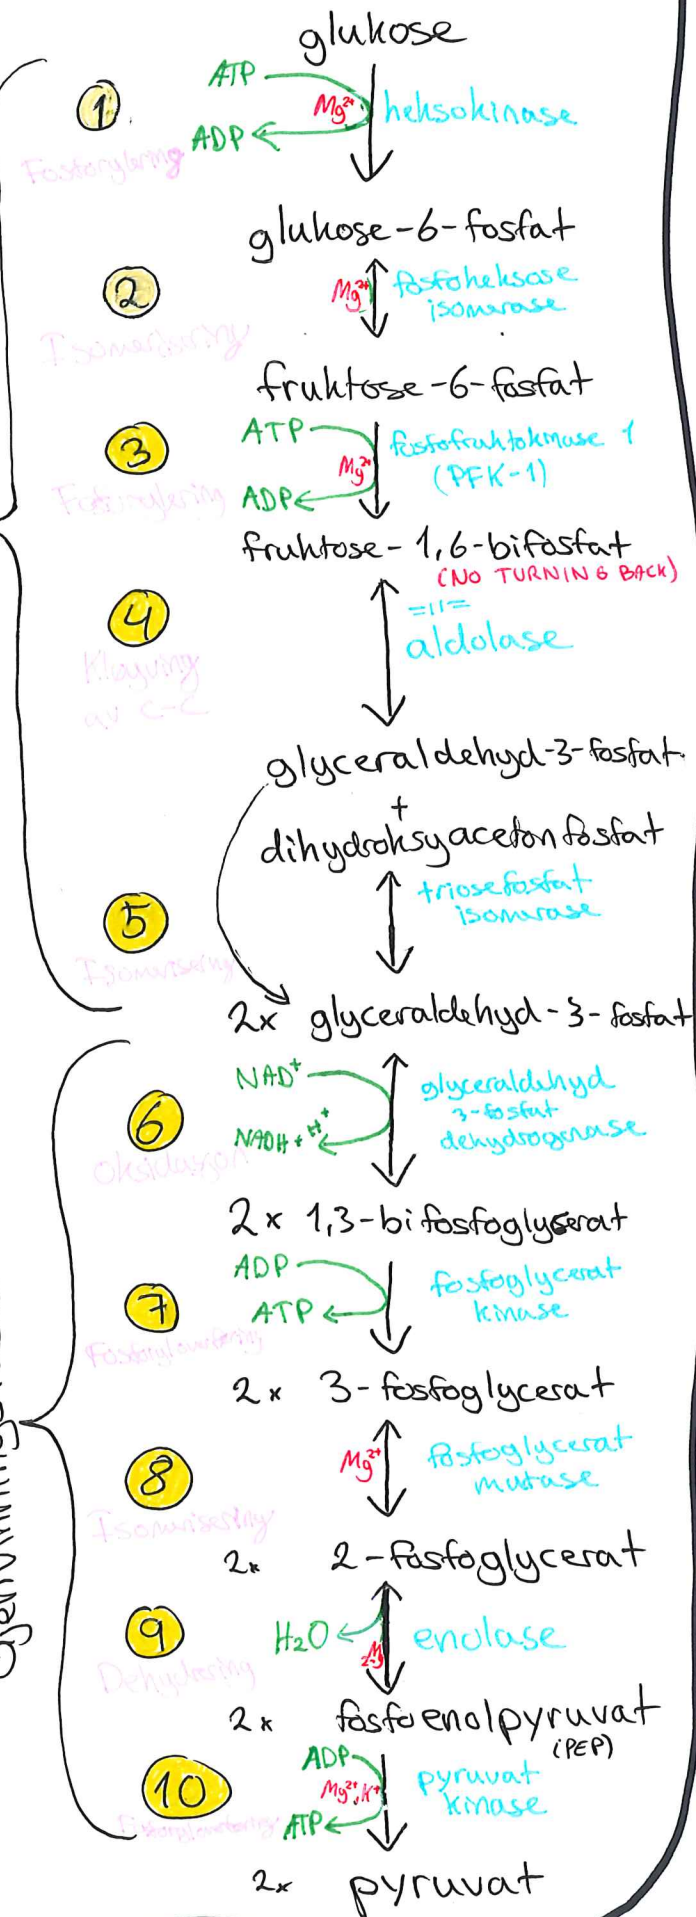 glukose
ATP
1
Mg²⁺
heksokinase
ADP
Fosforylering
glukose-6-fosfat
2
Mg²⁺
fosfoheksose
isomerase
Isomerisering
fruktose-6-fosfat
ATP
3
Mg²⁺
fosfofruktokinase 1
(PFK-1)
ADP
Fosforylering
fruktose-1,6-bifosfat
(NO TURNING BACK)
4
=11=
aldolase
Kløyving
av C-C
glyceraldehyd-3-fosfat
+
dihydroksyacetonfosfat
triosefosfat
isomerase
5
Isomerisering
2x glyceraldehyd-3-fosfat
NAD⁺
6
glyceraldehyd
3-fosfat
dehydrogenase
NADH + H⁺
Oksidasjon
2x 1,3-bifosfoglyserat
ADP
7
fosfoglycerat
kinase
ATP
2x 3-fosfoglycerat
Mg²⁺
8
fosfoglycerat
mutase
Isomerisering
2x 2-fosfoglycerat
9
H₂O
enolase
Dehydrering
2x fosfoenolpyruvat
(PEP)
ADP
10
Mg²⁺, K⁺
pyruvat
kinase
ATP
2x pyruvat